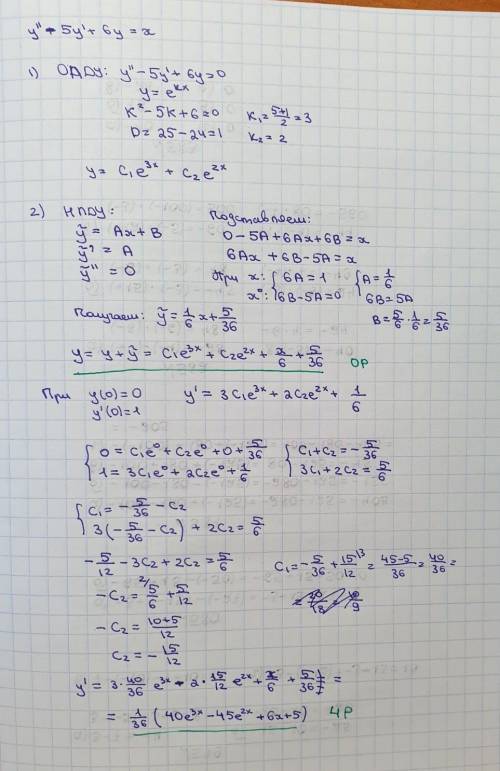 y'' - 5y' + 6y = x
1) ОЛДУ: y'' - 5y' + 6y = 0
y = e^{kx}
k² - 5k + 6 = 0   k₁ = \frac{5+1}{2} = 3
D = 25 - 24 = 1   k₂ = 2
y = C₁e^{3x} + C₂e^{2x}
2) НЛДУ:   Подставляем:
ỹ = Ax + B   0 - 5A + 6Ax + 6B = x
ỹ' = A   6Ax + 6B - 5A = x
ỹ'' = 0   При x: { 6A = 1   { A = \frac{1}{6}
x⁰: { 6B - 5A = 0   6B = 5A
Получаем: ỹ = \frac{1}{6}x + \frac{5}{36}   B = \frac{5}{6} · \frac{1}{6} = \frac{5}{36}
y = y + ỹ = C₁e^{3x} + C₂e^{2x} + \frac{x}{6} + \frac{5}{36}   ОР
При y(0) = 0   y' = 3C₁e^{3x} + 2C₂e^{2x} + \frac{1}{6}
y'(0) = 1
{ 0 = C₁e⁰ + C₂e⁰ + 0 + \frac{5}{36}   { C₁ + C₂ = -\frac{5}{36}
{ 1 = 3C₁e⁰ + 2C₂e⁰ + \frac{1}{6}   { 3C₁ + 2C₂ = \frac{5}{6}
{ C₁ = -\frac{5}{36} - C₂
{ 3(-\frac{5}{36} - C₂) + 2C₂ = \frac{5}{6}
-\frac{5}{12} - 3C₂ + 2C₂ = \frac{5}{6}   C₁ = -\frac{5}{36} + \frac{15}{12}^{/3} = \frac{45-5}{36} = \frac{40}{36} =
-C₂ = ^{2/}\frac{5}{6} + \frac{5}{12}
-C₂ = \frac{10+5}{12}
C₂ = -\frac{15}{12}
y' = 3 · \frac{40}{36} e^{3x} - 2 · \frac{15}{12} e^{2x} + \frac{x}{6} + \frac{5}{36} =
= \frac{1}{36} (40e^{3x} - 45e^{2x} + 6x + 5)   ЧР